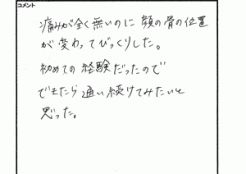 コメント
痛みが全く無いのに顔の骨の位置
が変わってびっくりした。
初めての経験だったので
できたら通い続けてみたいと
思った。